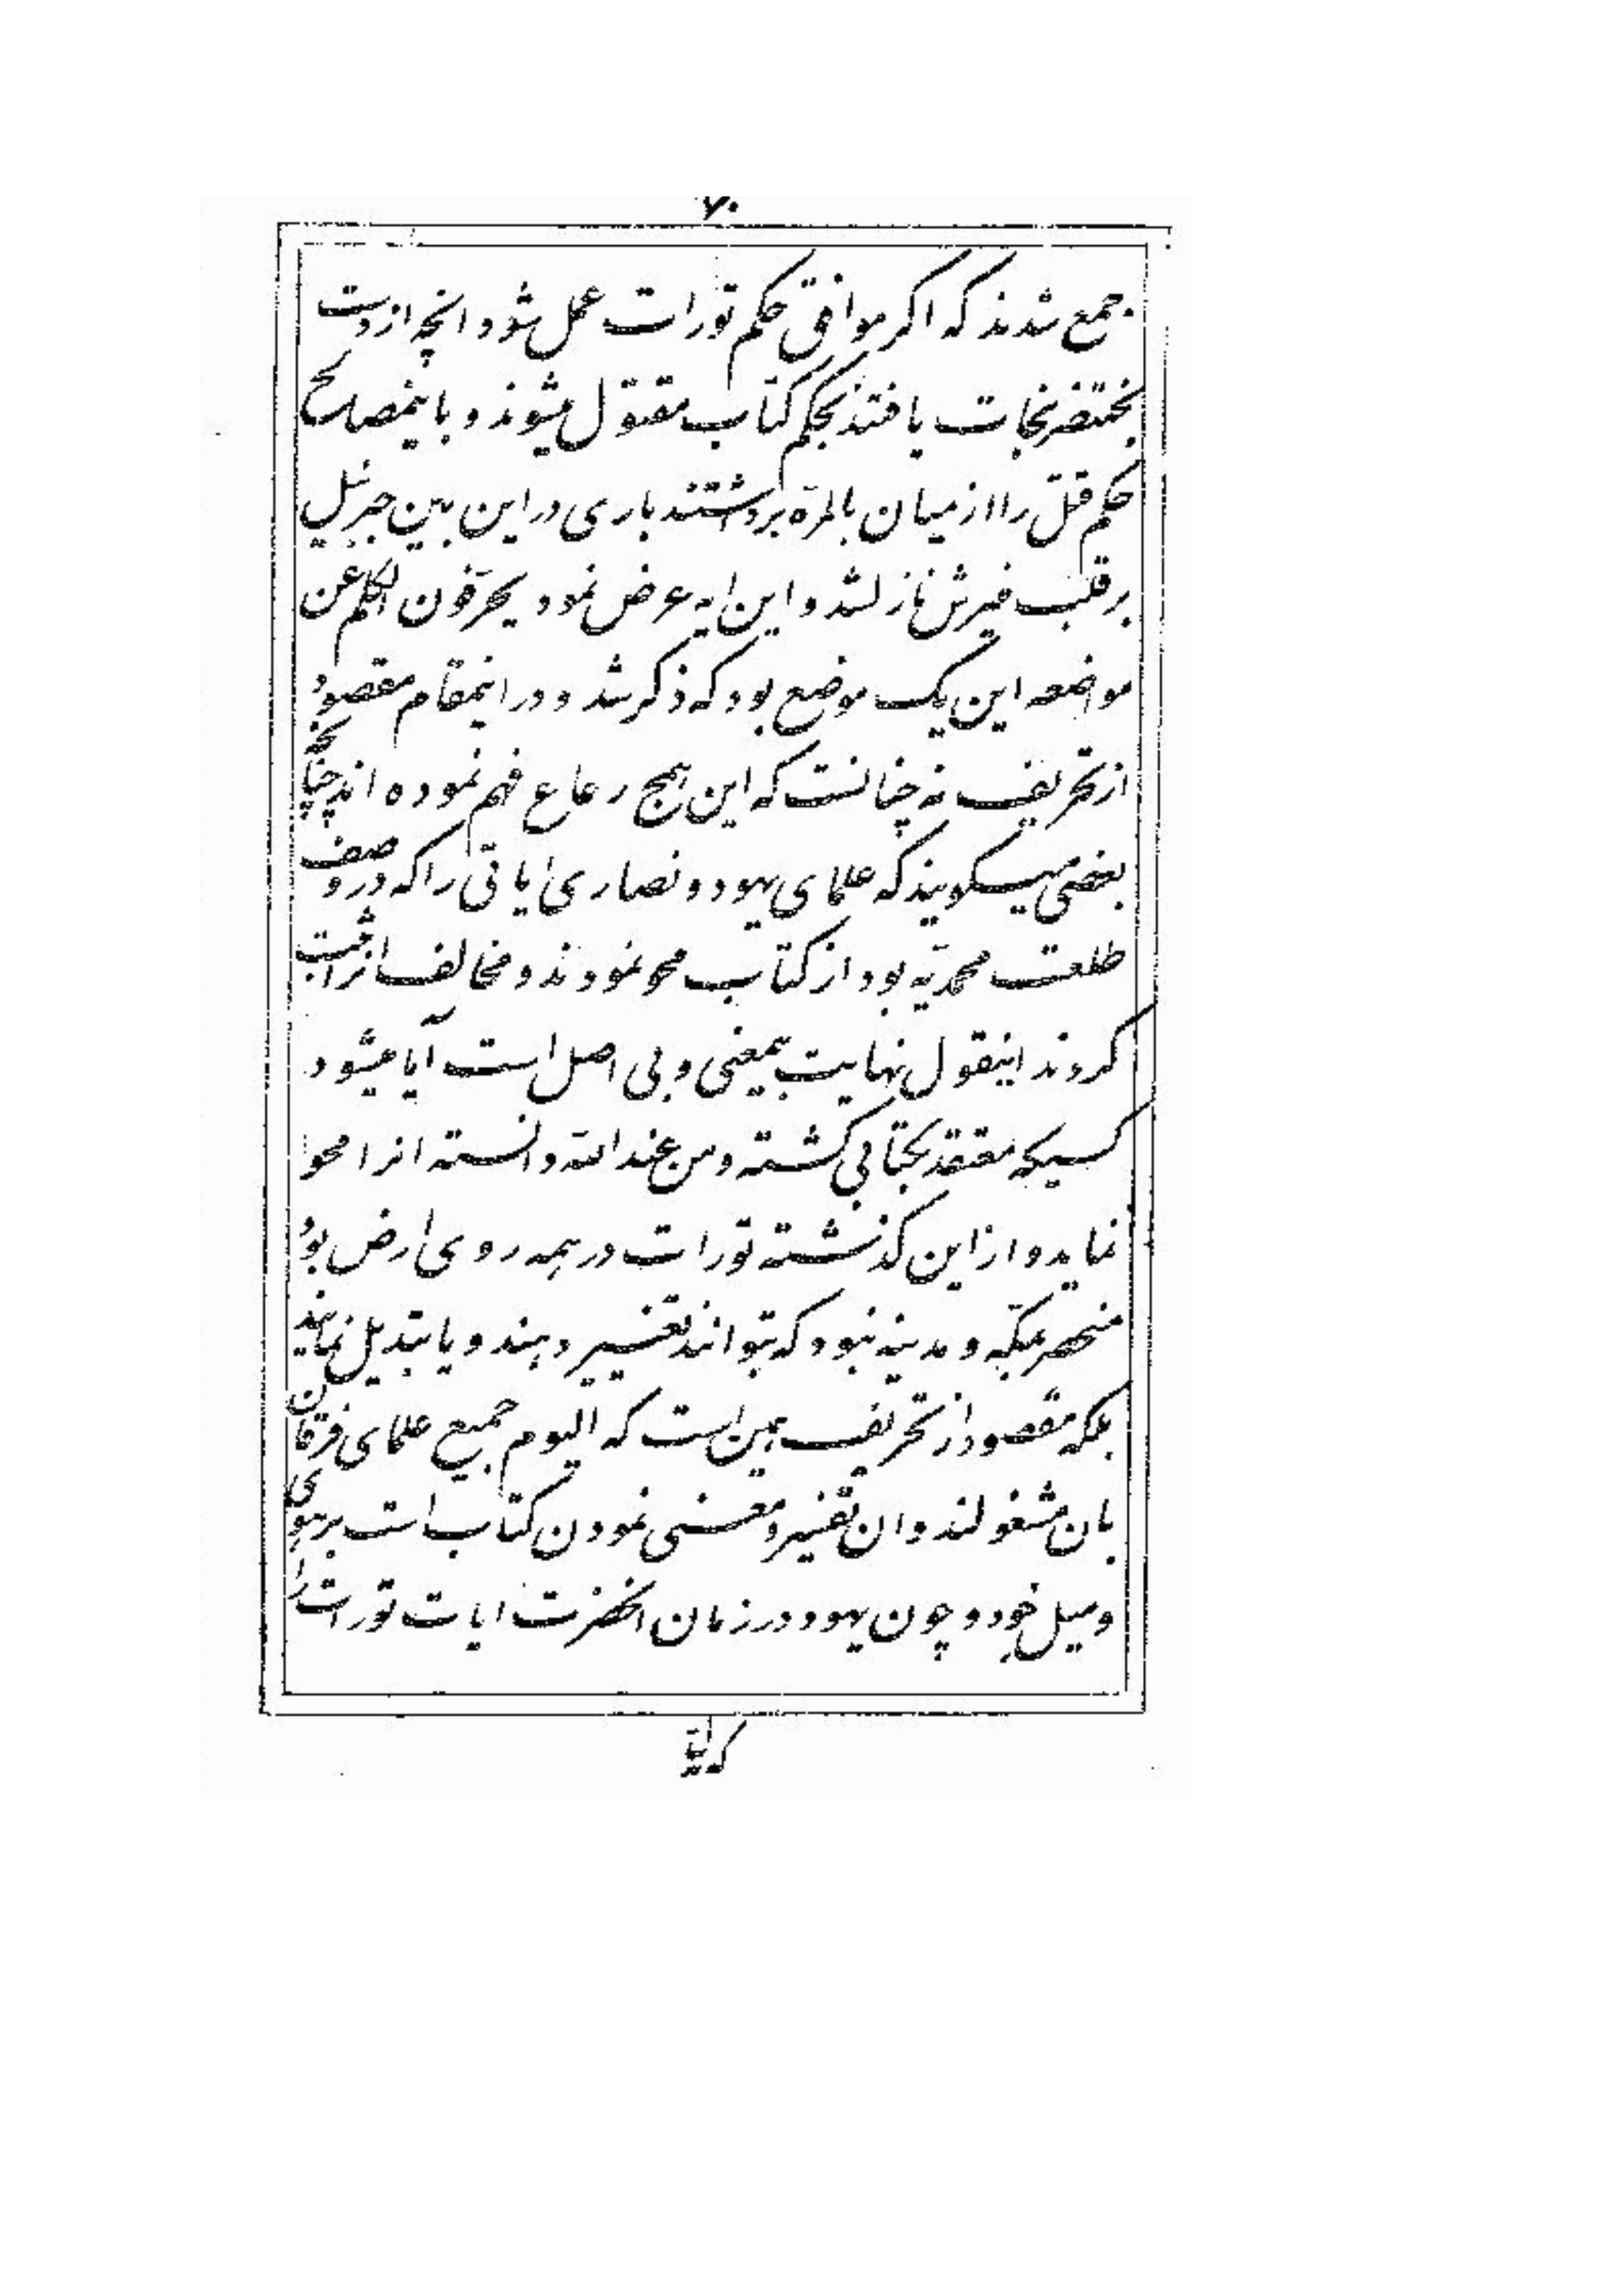 ۷۰
جمع شدند که اکر موافق حکم تورات عمل شود انچه از دست
بختنصر نجات یافتند بحکم کتاب مقتول میشوند و باینمصالح
حکم قتل را از میان بالمرّه برداشتند باری در این بین جبرئیل
بر قلب منیرش نازلشد و این ایه عرض نمود یحرّفون الکلم عن
مواضعه این یک موضع بود که ذکر شد و در اینمقام مقصود
از تحریف نه چنانست که این همج رعاع فهم نموده اند چنانچه
بعضی میکویند که علمای یهود و نصاری ایاتی را که در وصف
طلعت محمدیّه بود از کتاب محو نمودند و مخالف انرا ثبت
کردند اینقول نهایت بیمعنی و بی اصل است آیا میشود
کسیکه معتقد بکتابی کشته و من عند اللّه دانسته انرا محو
نماید و از این کذشته تورات در همه روی ارض بود
منحصر بمکّه و مدینه نبود که بتوانند تغییر دهند و یا تبدیل نمایند
بلکه مقصود از تحریف همین است که الیوم جمیع علمای فرقان
بان مشغولند و ان تفسیر و معنی نمودن کتاب است بر هوی
و میل خود و چون یهود در زمان انحضرت ایات تورات را
که